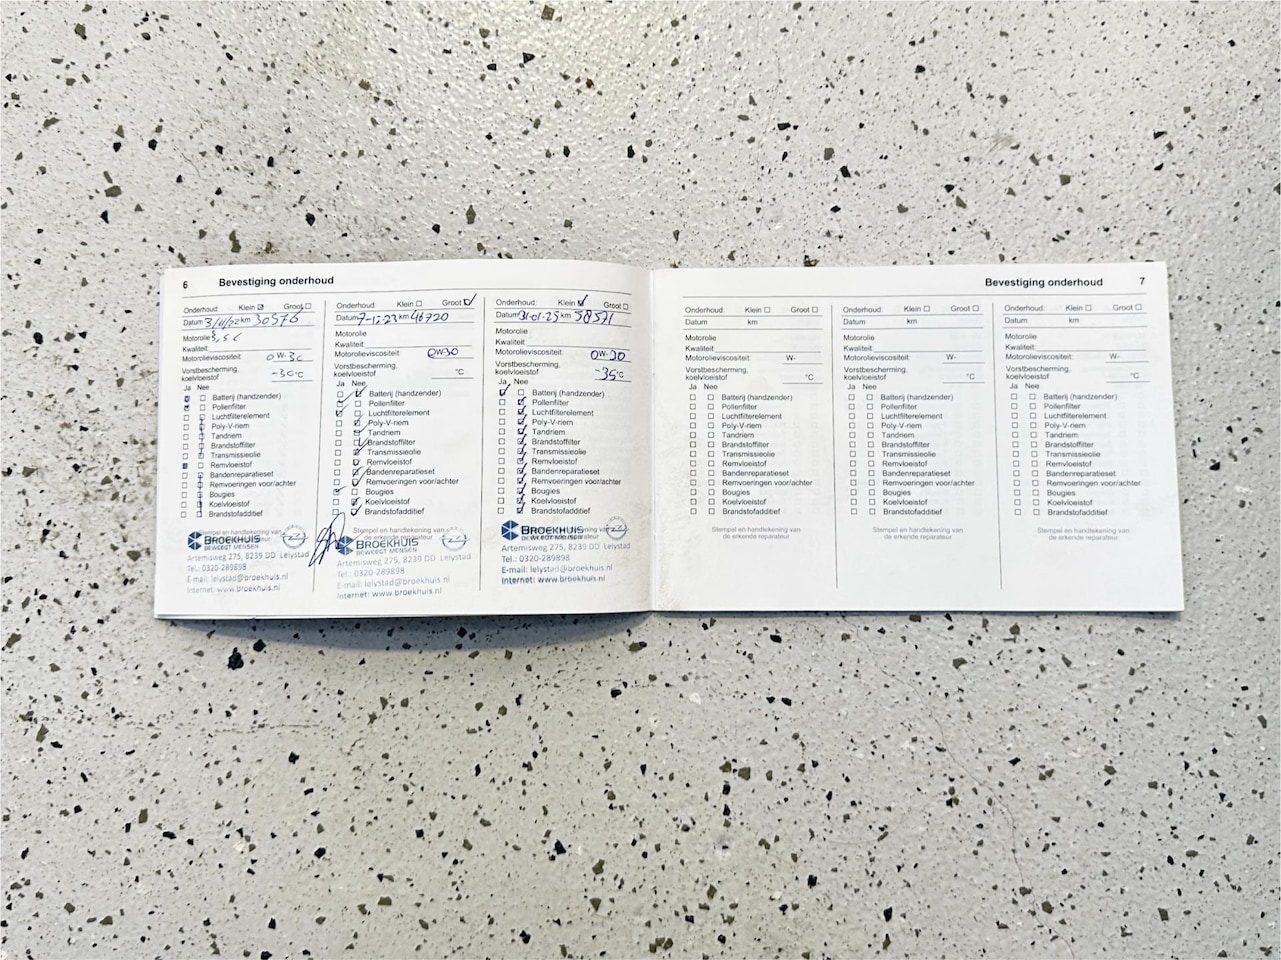 6 Bevestiging onderhoud
Onderhoud: Klein Groot
Datum 3/11/22 km 30576
Motorolie 3,5 L
Kwaliteit
Motorolieviscositeit: 0W-30
Vorstbescherming,
koelvloeistof -30°C
Ja Nee
Batterij (handzender)
Pollenfilter
Luchtfilterelement
Poly-V-riem
Tandriem
Brandstoffilter
Transmissieolie
Remvloeistof
Bandenreparatieset
Remvoeringen voor/achter
Bougies
Koelvloeistof
Brandstofadditief
Stempel en handtekening van
BROEKHUIS
BEWEEGT MENSEN
Artemisweg 275, 8239 DD Lelystad
Tel.: 0320-289898
E-mail: lelystad@broekhuis.nl
Internet: www.broekhuis.nl
Onderhoud: Klein Groot
Datum 7-12-23 km 46720
Motorolie
Kwaliteit
Motorolieviscositeit: 0W-30
Vorstbescherming,
koelvloeistof °C
Ja Nee
Batterij (handzender)
Pollenfilter
Luchtfilterelement
Poly-V-riem
Tandriem
Brandstoffilter
Transmissieolie
Remvloeistof
Bandenreparatieset
Remvoeringen voor/achter
Bougies
Koelvloeistof
Brandstofadditief
Stempel en handtekening van
de erkende reparateur
BROEKHUIS
BEWEEGT MENSEN
Artemisweg 275, 8239 DD Lelystad
Tel.: 0320-289898
E-mail: lelystad@broekhuis.nl
Internet: www.broekhuis.nl
Onderhoud: Klein Groot
Datum 31-01-25 km 58571
Motorolie
Kwaliteit
Motorolieviscositeit: 0W-30
Vorstbescherming,
koelvloeistof -35°C
Ja Nee
Batterij (handzender)
Pollenfilter
Luchtfilterelement
Poly-V-riem
Tandriem
Brandstoffilter
Transmissieolie
Remvloeistof
Bandenreparatieset
Remvoeringen voor/achter
Bougies
Koelvloeistof
Brandstofadditief
BROEKHUIS
BEWEEGT MENSEN
Artemisweg 275, 8239 DD Lelystad
Tel.: 0320-289898
E-mail: lelystad@broekhuis.nl
Internet: www.broekhuis.nl
Bevestiging onderhoud 7
Onderhoud: Klein Groot
Datum km
Motorolie
Kwaliteit:
Motorolieviscositeit: W-
Vorstbescherming,
koelvloeistof °C
Ja Nee
Batterij (handzender)
Pollenfilter
Luchtfilterelement
Poly-V-riem
Tandriem
Brandstoffilter
Transmissieolie
Remvloeistof
Bandenreparatieset
Remvoeringen voor/achter
Bougies
Koelvloeistof
Brandstofadditief
Stempel en handtekening van
de erkende reparateur
Onderhoud: Klein Groot
Datum km
Motorolie
Kwaliteit:
Motorolieviscositeit: W-
Vorstbescherming,
koelvloeistof °C
Ja Nee
Batterij (handzender)
Pollenfilter
Luchtfilterelement
Poly-V-riem
Tandriem
Brandstoffilter
Transmissieolie
Remvloeistof
Bandenreparatieset
Remvoeringen voor/achter
Bougies
Koelvloeistof
Brandstofadditief
Stempel en handtekening van
de erkende reparateur
Onderhoud: Klein Groot
Datum km
Motorolie
Kwaliteit:
Motorolieviscositeit: W-
Vorstbescherming,
koelvloeistof °C
Ja Nee
Batterij (handzender)
Pollenfilter
Luchtfilterelement
Poly-V-riem
Tandriem
Brandstoffilter
Transmissieolie
Remvloeistof
Bandenreparatieset
Remvoeringen voor/achter
Bougies
Koelvloeistof
Brandstofadditief
Stempel en handtekening van
de erkende reparateur